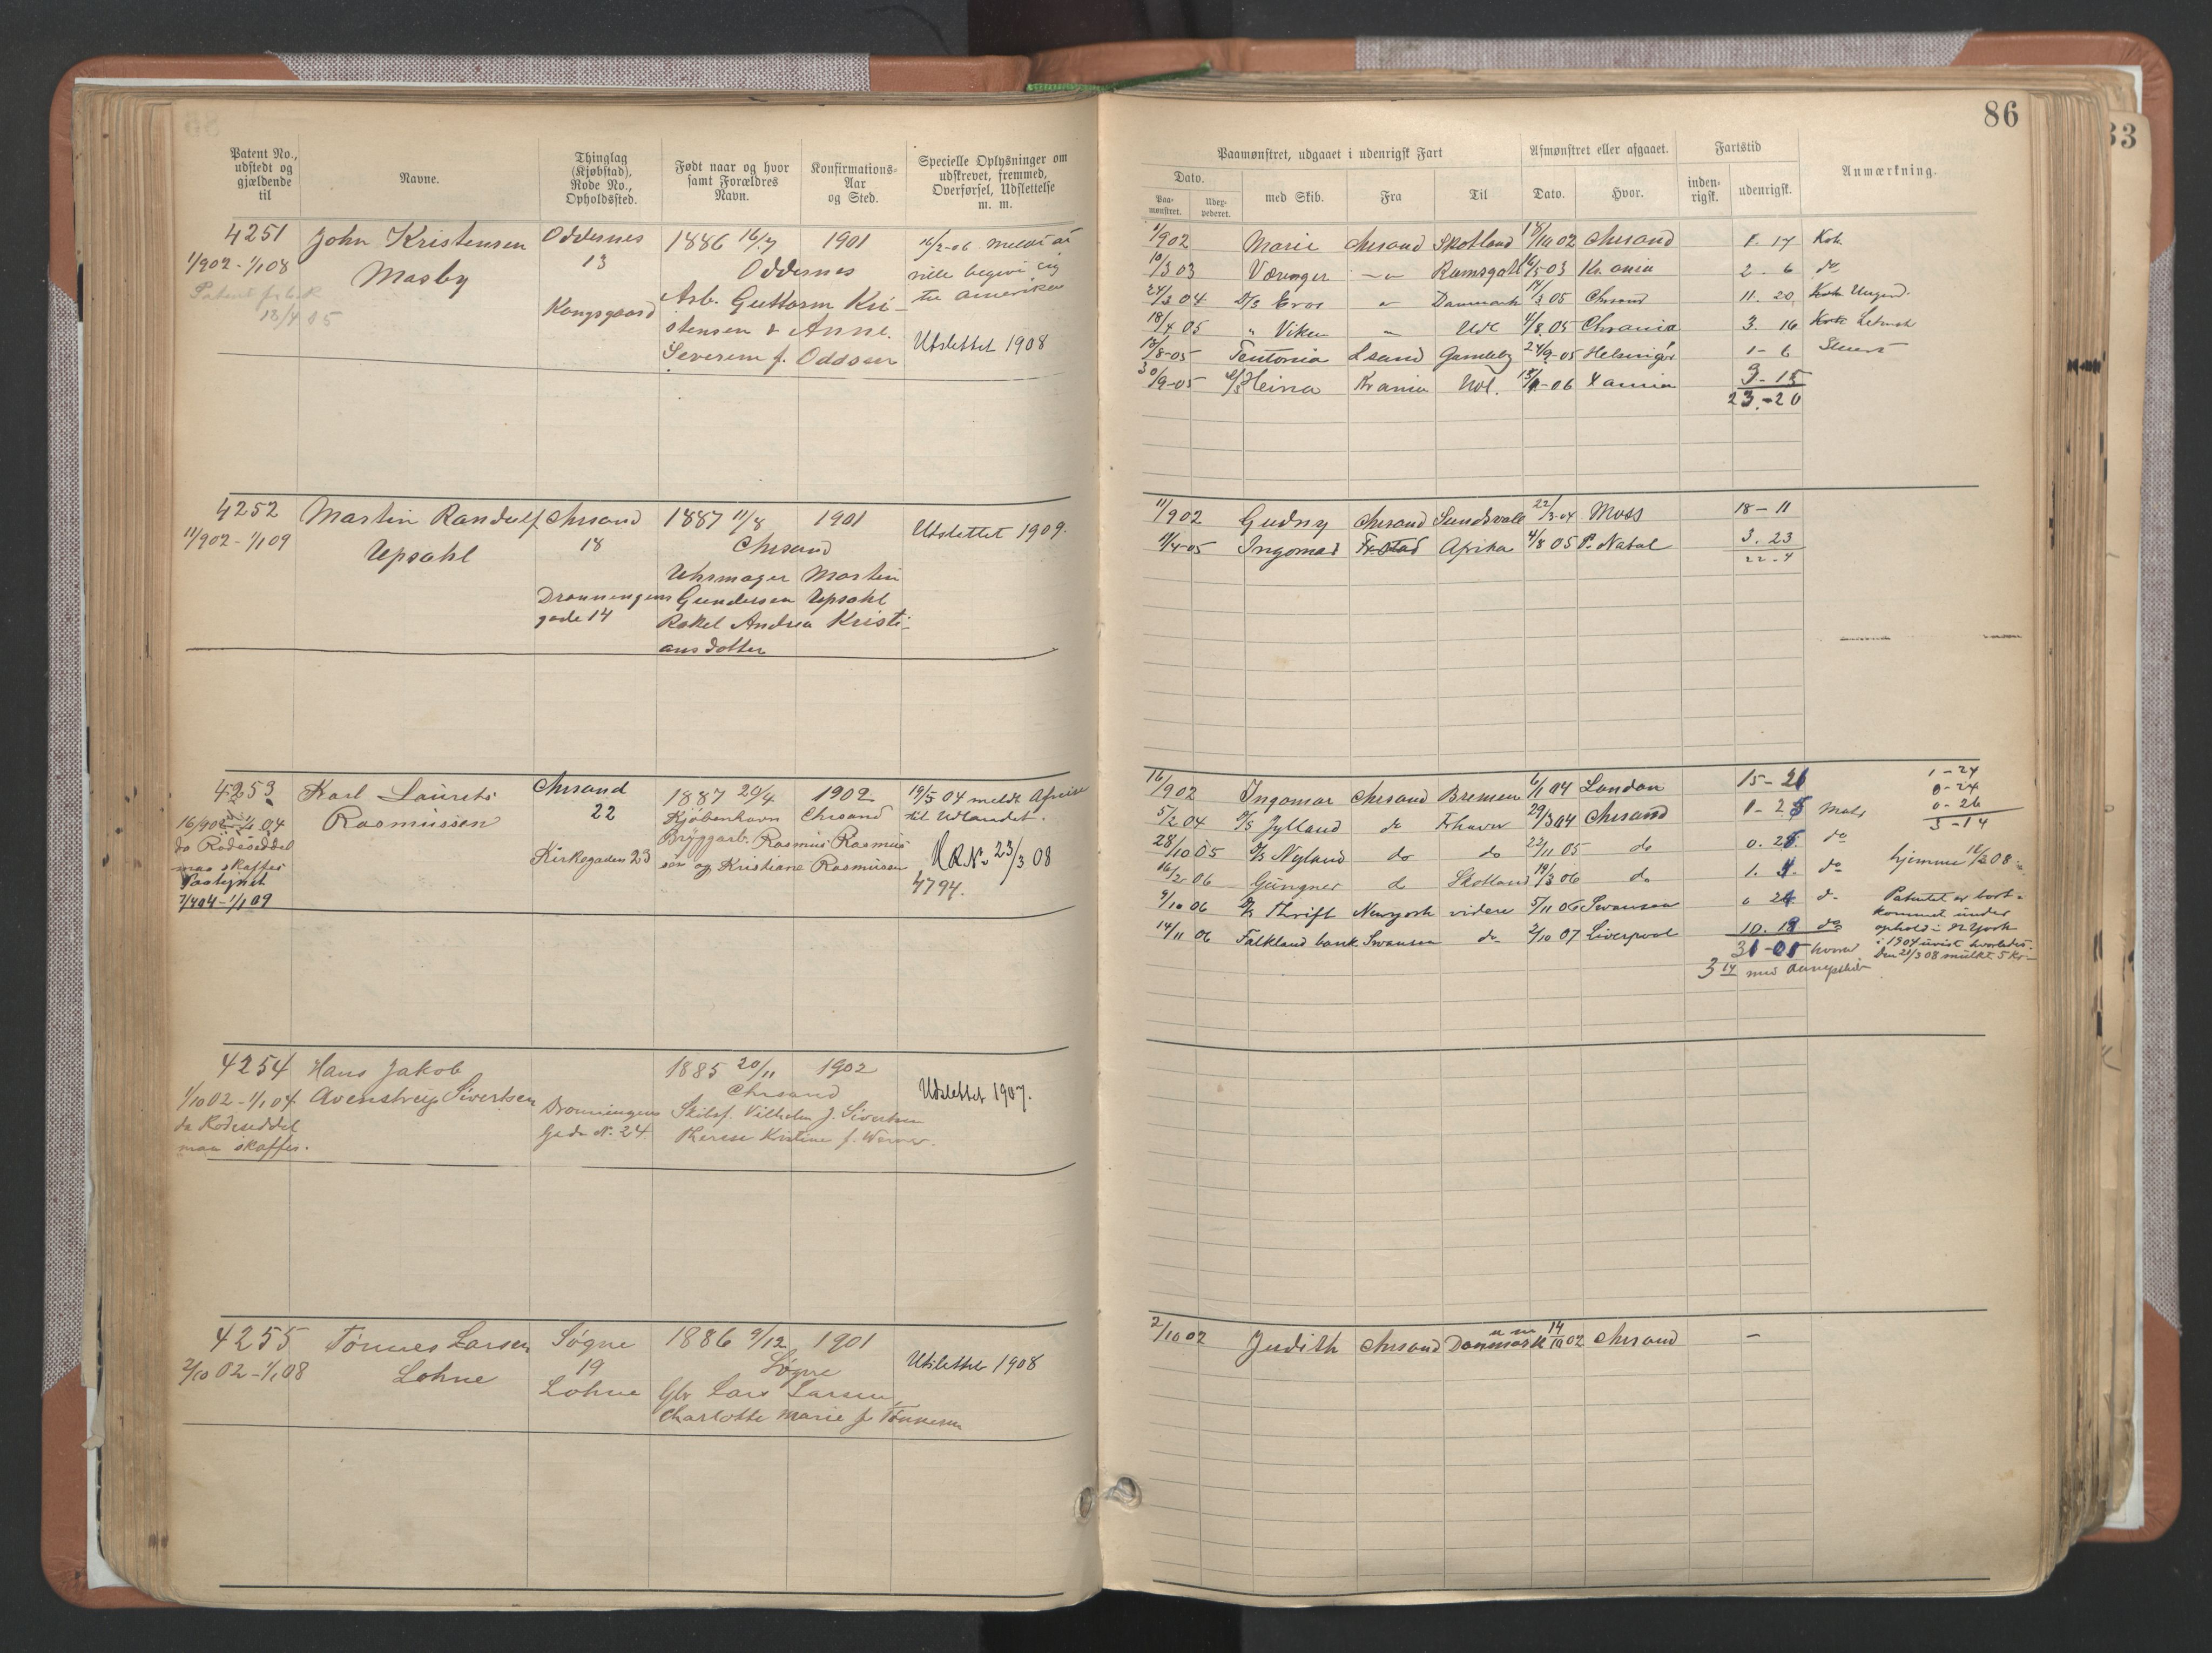 86
Patent No., udstedt og gjældende til
Navne.
Thinglag (Kjøbstad), Rode No., Opholdssted.
Født naar og hvor samt Forældres Navn.
Konfirmations-Aar og Sted.
Specielle Oplysninger om udskrevet, fremmed, Overførsel, Udslettelse m. m.
Paamønstret, udgaaet i udenrigsk Fart
Dato.
Paa-mønstret.
Udex-pederet.
med Skib.
Fra
Til
Afmønstret eller afgaaet.
Dato.
Hvor.
Fartstid
inden-rigsk.
udenrigsk.
Anmærkning.
4251 John Kristensen Oddernes 1886 16/7 1901
1/902 - 1/1 08 Mosby 13 Oddernes
Kongsgaard Arb. Guttorm Kri-
stensen & Anne
Severine f. Oddsen
16/2-06 meldt at
ville begive sig
til Amerika
Udslettet 1908
1/902 Marie Chrsand Skotland 18/10 02 Chrsand 1. 17 Kok
10/3 03 Væringer Ramsgate 16/5 03 Kr.ania 2. 6 do
24/3 04 D/S Eros Danmark 14/3 05 Chrsand 11. 20 Kok Ungmd.
18/4 05 " Viken " Udl 4/8 05 Chrania 3. 16 Kok Letmat
18/8-05 Teutonia Lsand Gamleby 24/9-05 Helsingør 1-6
30/9-05 D/S Heina Krania Udl. Xania 3-15
23-20
4252 Martin Randulf Chrsand 1887 11/8 1901
11/902 - 1/1 09 Upsahl 18 Chrsand
Uhrmager Martin
Dronningens Gundersen Upsahl
gade 14 Rakel Andrea Kristi-
ansdotter
Udslettet 1909.
11/902 Gudny Chrsand Sundsvall 22/3-04 Moss 18-11
1/4-05 Ingomar Frstad Afrika 4/8 05 P. Natal 3. 23
22-4
4253 Karl Laurits Chrsand 1887 20/4 1902
Rasmussen 22 Kjøbenhavn Chrsand
16/902 - 1/1 04
do Rodeseddel
maa skaffes
Kirkegaden 23
Bryggarb. Rasmus Rasmus
sen og Kristiane Rasmussen
7/4 04 - 1/1 09
19/5 04 meldt Afreise
til Udlandet.
N R.No 23/3 08
4794.
16/902 Ingomar Chrsand Bremen 6/1 04 London 15-21
5/2 04 D/S Jylland do Frhavn 29/3 04 Chrsand 1-25 Mats
28/10 05 D/S Nyland do do 22/11 05 do 0. 25 do
16/2 06 Gungner d Skotland 19/3 06 do 1. 4. do
9/10 06 D/S Thrift Newyork videre 5/11 06 Swansea 0 26 d-
14/11 06 Falkland bank Swansea do 2/10 07 Liverpool 10. 18 do
31-01
3 14 med
1-24
0-24
0-26
3-14
hjemme 12/2 08
Patentet er bort-
kommet under
ophold i N.York
i 1904 uvist hvorledes.
Den 21/3 08 mulkt 5 Kr
4254 Hans Jakob 1885 20/11 1902
1/10 02 - 1/1 04 Avenstrup Sivertsen Chrsand
do Rodeseddel
maa skaffes.
Dronningens
Gade N. 24.
Skibsf. Vilhelm J. Sivertsen
Therese Kristine f.
Udslettet 1907.
4255 Tønnes Larsen Søgne 1886 9/12 1901
2/10 02 - 1/1 08 Lohne 19 Søgne
Lohne Gbr Lars Larsen
Charlotte Marie f. Tønnesen
Udslettet 1908
2/10 02 Judith Chrsand Danmark 14/10 02 Chrsand -